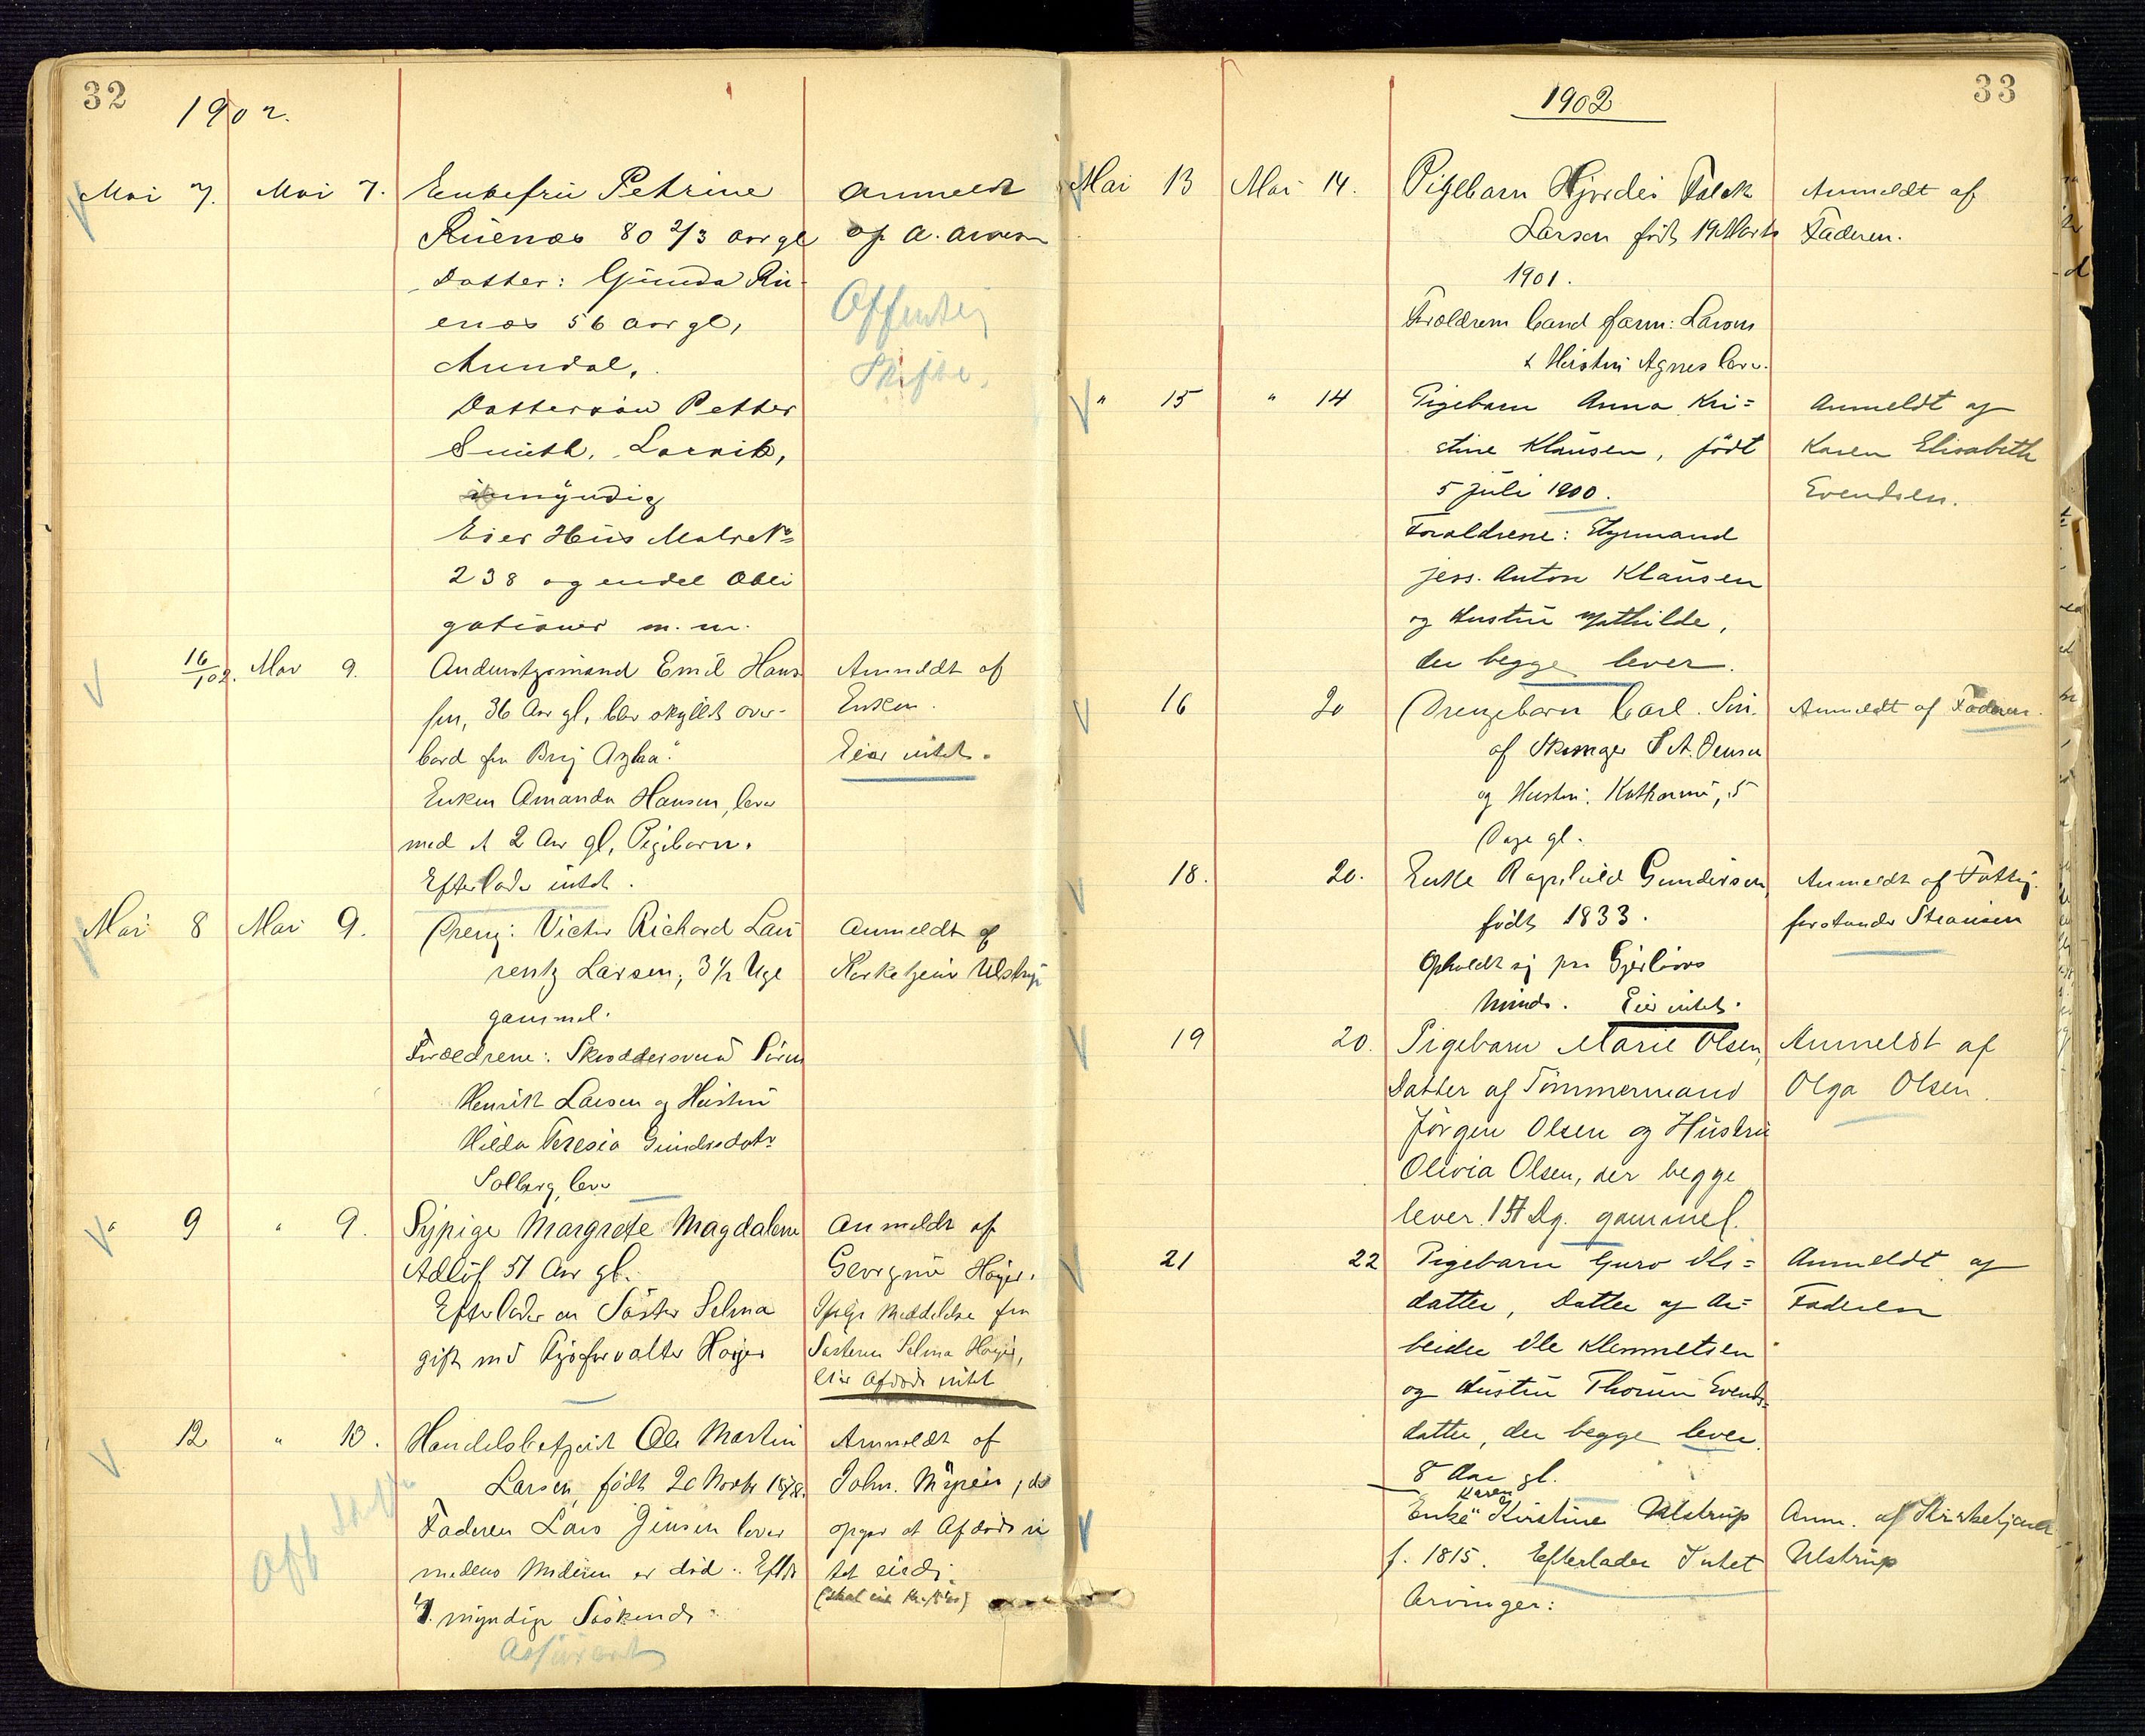 32
1902.
Mai 7. Mai 7. Enkefru Petrine Anmeldt
Ruenæs 80 2/3 Aar gl af A. Arnesen
Datter: Gunda Ru-
enæs 56 Aar gl,
Arendal,
Offentlig
Skifte.
Dattersøn Petter
Smith, Larvik,
umyndig
Eier Hus Matr No
238 og endel Obli
gationer m. m.
16/1 02. Mai 9. Anmeldt af
Emil Hans
sen, 36 Aar gl, blev skyllet over-
Enken.
bord fra Brig
Eier intet.
Enken Amanda Hansen, lever
med et 2 Aar gl, Pigebarn.
Efterlader intet.
Mai 8 Mai 9. Dreng: Victor Richard Lau
Anmeldt af
rentz Larsen, 3 1/2 Uge
Kirketjener Ulstrup
gammel.
Forældrene: Skræddersvend Søren
Henrik Larsen og Hustru
Hilda Teresia Gundersdatr
Solberg, lever
" 9 " 9. Sypige Margrete Magdalene Anmeldt af
Adløf 51 Aar gl.
Høyer.
Efterlader en Søster Selma
Ifølge Meddelelse fra
gift med Høyer
Søsteren Selma Høyer,
eier Afdøde intet
12 " 13. Handelsbetjent Ole Martin Anmeldt af
Larsen, født 20 Novbr
John.
Faderen Lars Jensen lever
opgav at Afdøde in
medens Moderen er død. Efter
tet eiede.
myndige Søskende
Off Skifte
Assurert
33
1902
Mai 13 Mai 14. Pigebarn Hjørdis Falck Anmeldt af
Larsen født 19 Marts Faderen.
1901.
Forældrene Cand farm: Larsen
& Hustru Agnes lever.
" 15 " 14 Pigebarn Anna Kri= Anmeldt af
stine Klausen, født Karen Elisabeth
5 Juli 1900. Evendsen.
Forældrene: Styrmand
Jess. Anton Klausen
og Hustru Mathilde,
der begge lever.
16 20 Drengebarn Carl. Søn Anmeldt af Faderen.
af S A. Jensen
og Hustru 5
Dage gl.
18. 20. Enke Ragnhild Gundersen Anmeldt af Fattig-
født 1833. forstander
Opholdt sig paa
Minde. Eier intet.
19 20. Pigebarn Marie Olsen, Anmeldt af
Datter af Tømmermand Olga Olsen.
Jørgen Olsen og Hustru
Olivia Olsen, der begge
lever. Dg. gammel.
21 22 Pigebarn Guro Ols= Anmeldt af
datter, Datter af Ar= Faderen
beider Ole Klemmetsen
og Hustru Thorun Evends-
datter, der begge lever.
8 Aar gl.
Karen
Enke Kirstine Ulstrup Anm. af Kirketjener
f. 1815. Efterlader Intet Ulstrup
Arvinger: